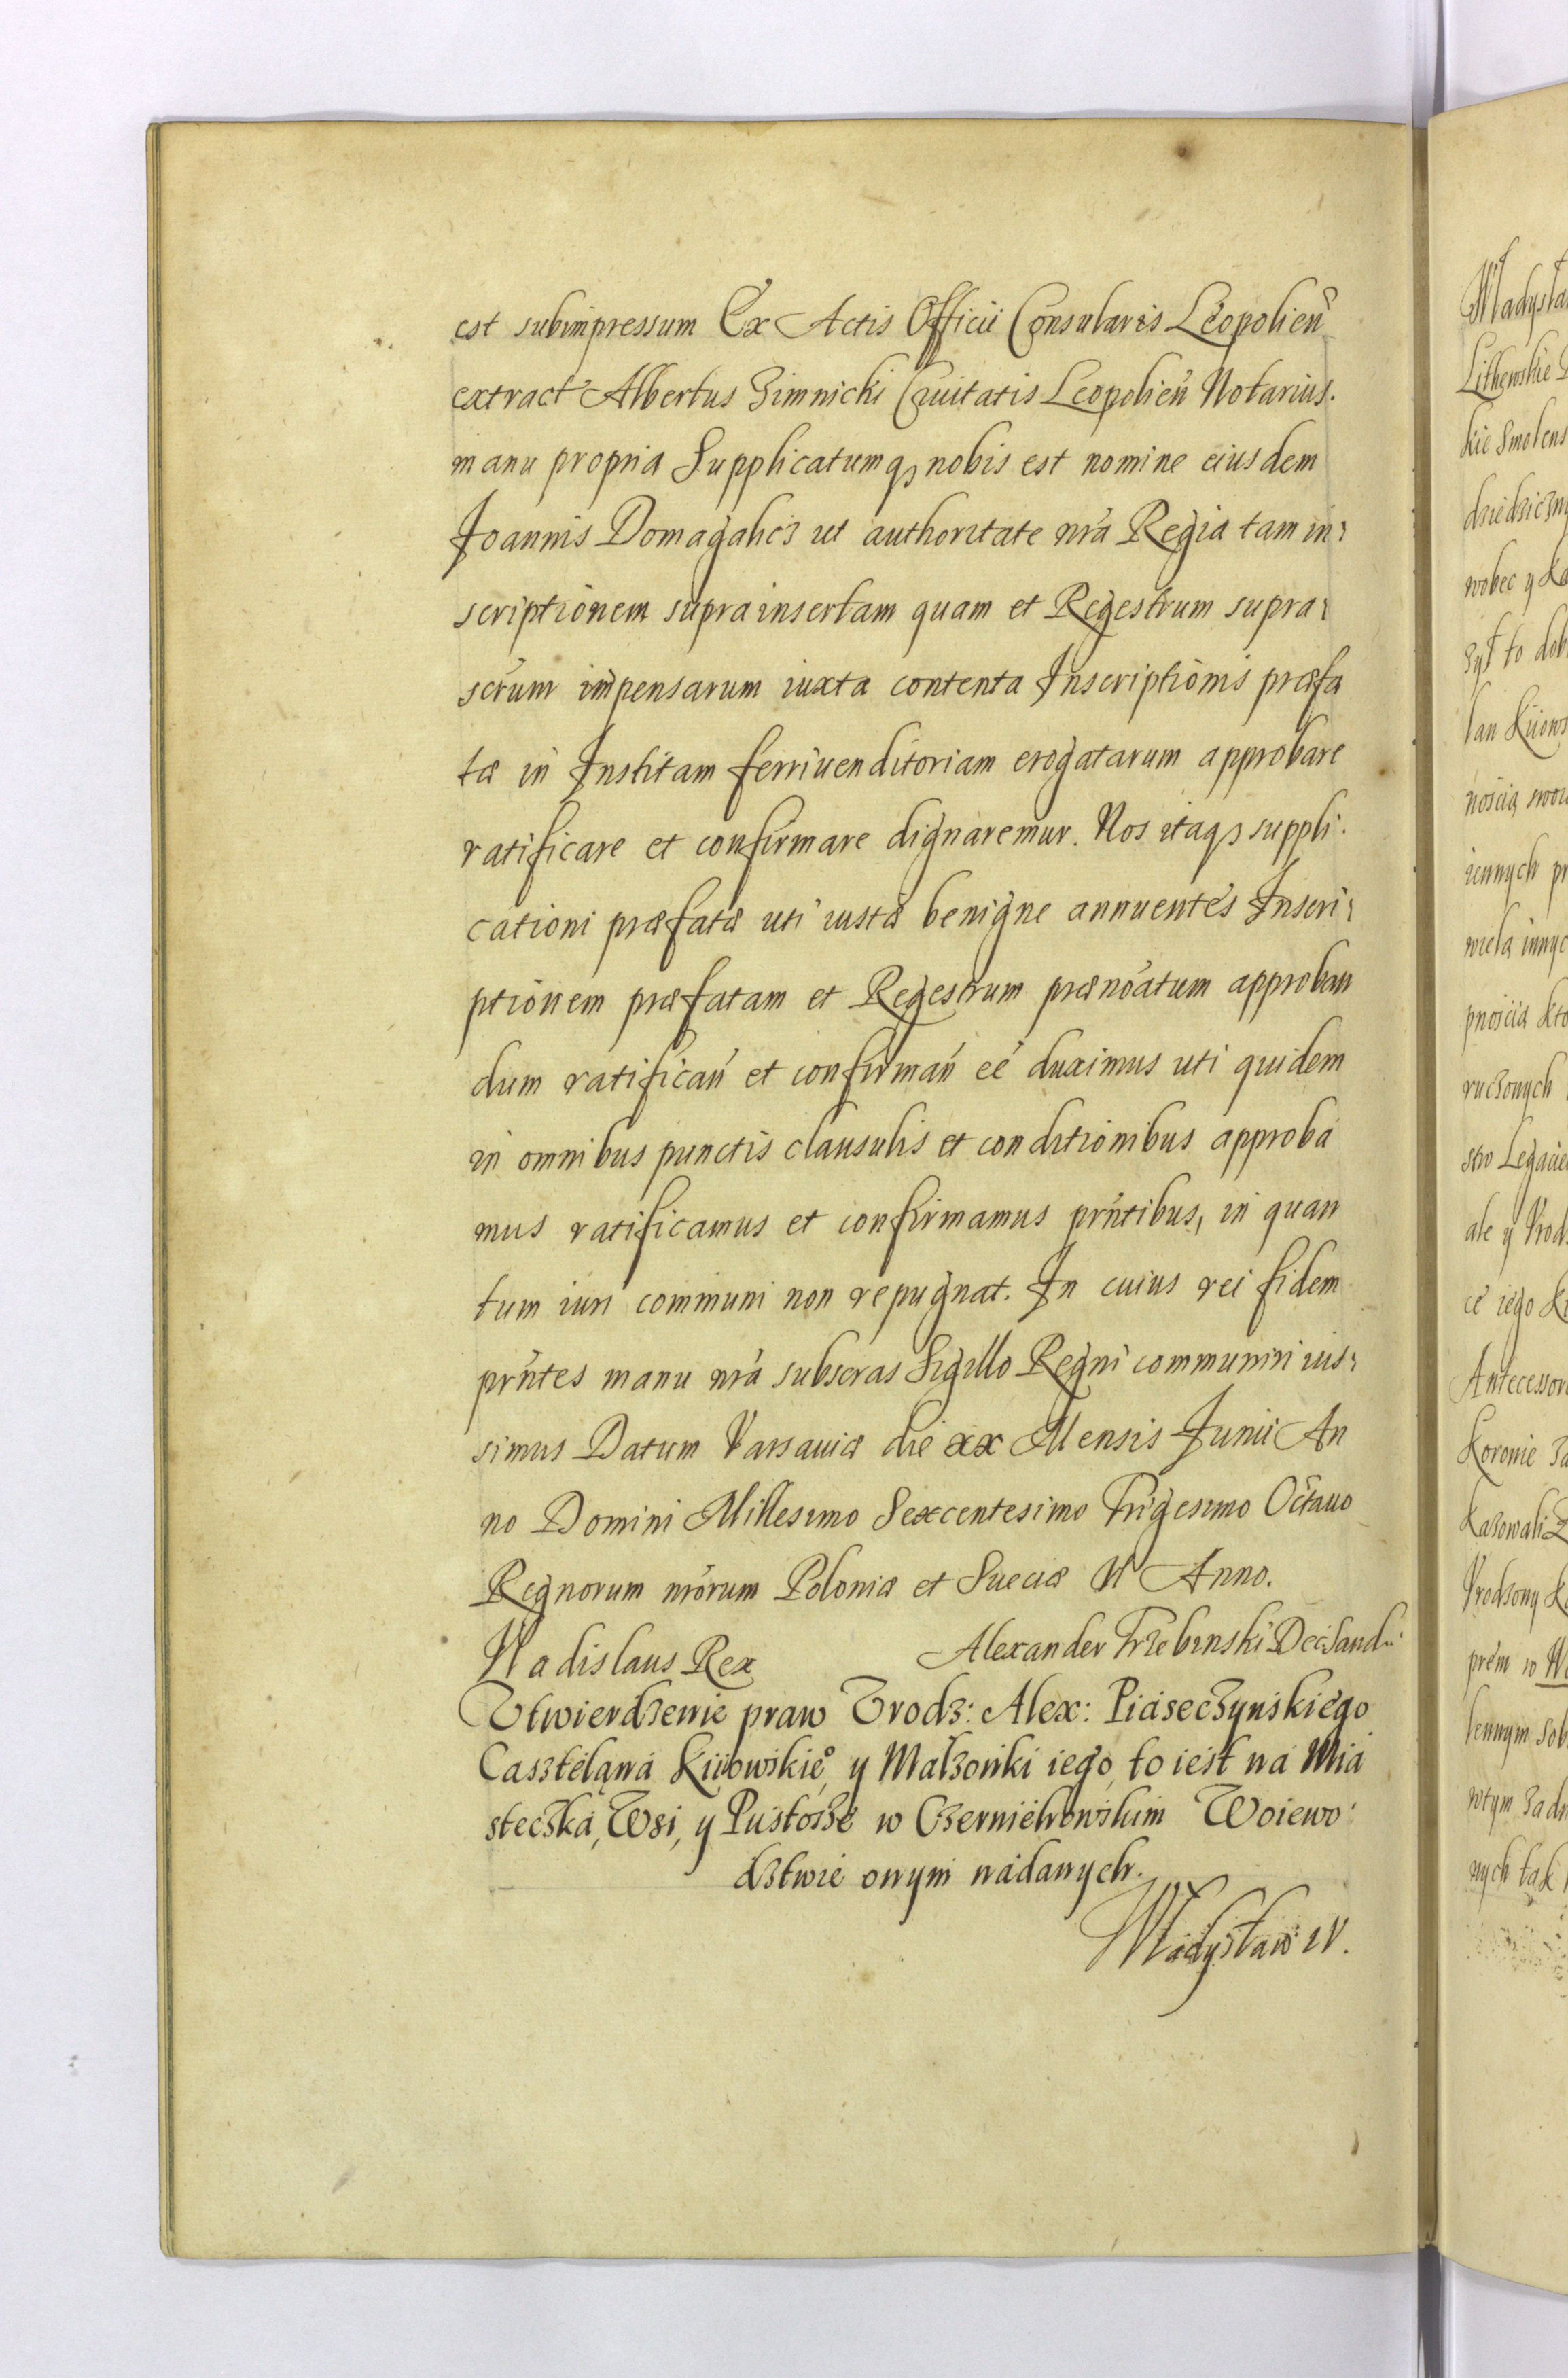 est subimpressum Ex Actis Officii Consularis Leopolień
extract Albertus Zimnicki Civitatis Leopolień Notarius.
manu propria Supplicatumqꝫ nobis est nomine eiusdem
Joannis Domagalicz ut authoritate nrã Regia tam in:
scriptionem suprainsertam quam et Regestrum supra:
scrum impensarum iuxta contenta Inscriptionis præfa
tæ in Institam ferriuenditoriam erogatarum approbare
ratificare et confirmare dignaremur. Nos itaqꝫ suppli:
cationi præfatæ uti iustæ benigne annuentes Inscri:
ptionem præfatam et Regestrum prænoatum approban
dum ratifican̄ et confirman̄ eē duximus uti quidem
in omnibus punctis clausulis et conditionibus approba
mus ratificamus et confirmamus prñtibus, in quan
tum iuri communi non repugnat. In cuius rei fidem
prñtes manu nrã subscras Sigillo Regni communiri ius:
simus Datum Varsauiæ die xx Mensis Junii An
no Domini Millesimo Sexcentesimo Trigesimo Octauo
Regnorum nrõrum Poloniæ et Sueciæ VI Anno.
Vladislaus Rex Alexander Trzebinski
Utwierdzenie praw Urodz: Alex: Piaseczynskiego
Casztelana Kiiowskie°, y Małzonki iego, to iest na Mia
steczka, Wsi, y Pustosze w Czerniehowskim Woiewo:
dztwie onym nadanych.
Władysław IV.
Władysła
Lithewskie
kie Smolens
dziedziczny
wobec y Ka
zył to dob
lan Kiiows
noscią swoi
iennych pr
wielą innyc
pnoscią kto
ruczonych
stw Legacie
ale y Urodz
ce iego K
Antecessor
Koronie za
kazowali
Urodzony K
prẽm w W
lennym sob
wtym zad
nych tak